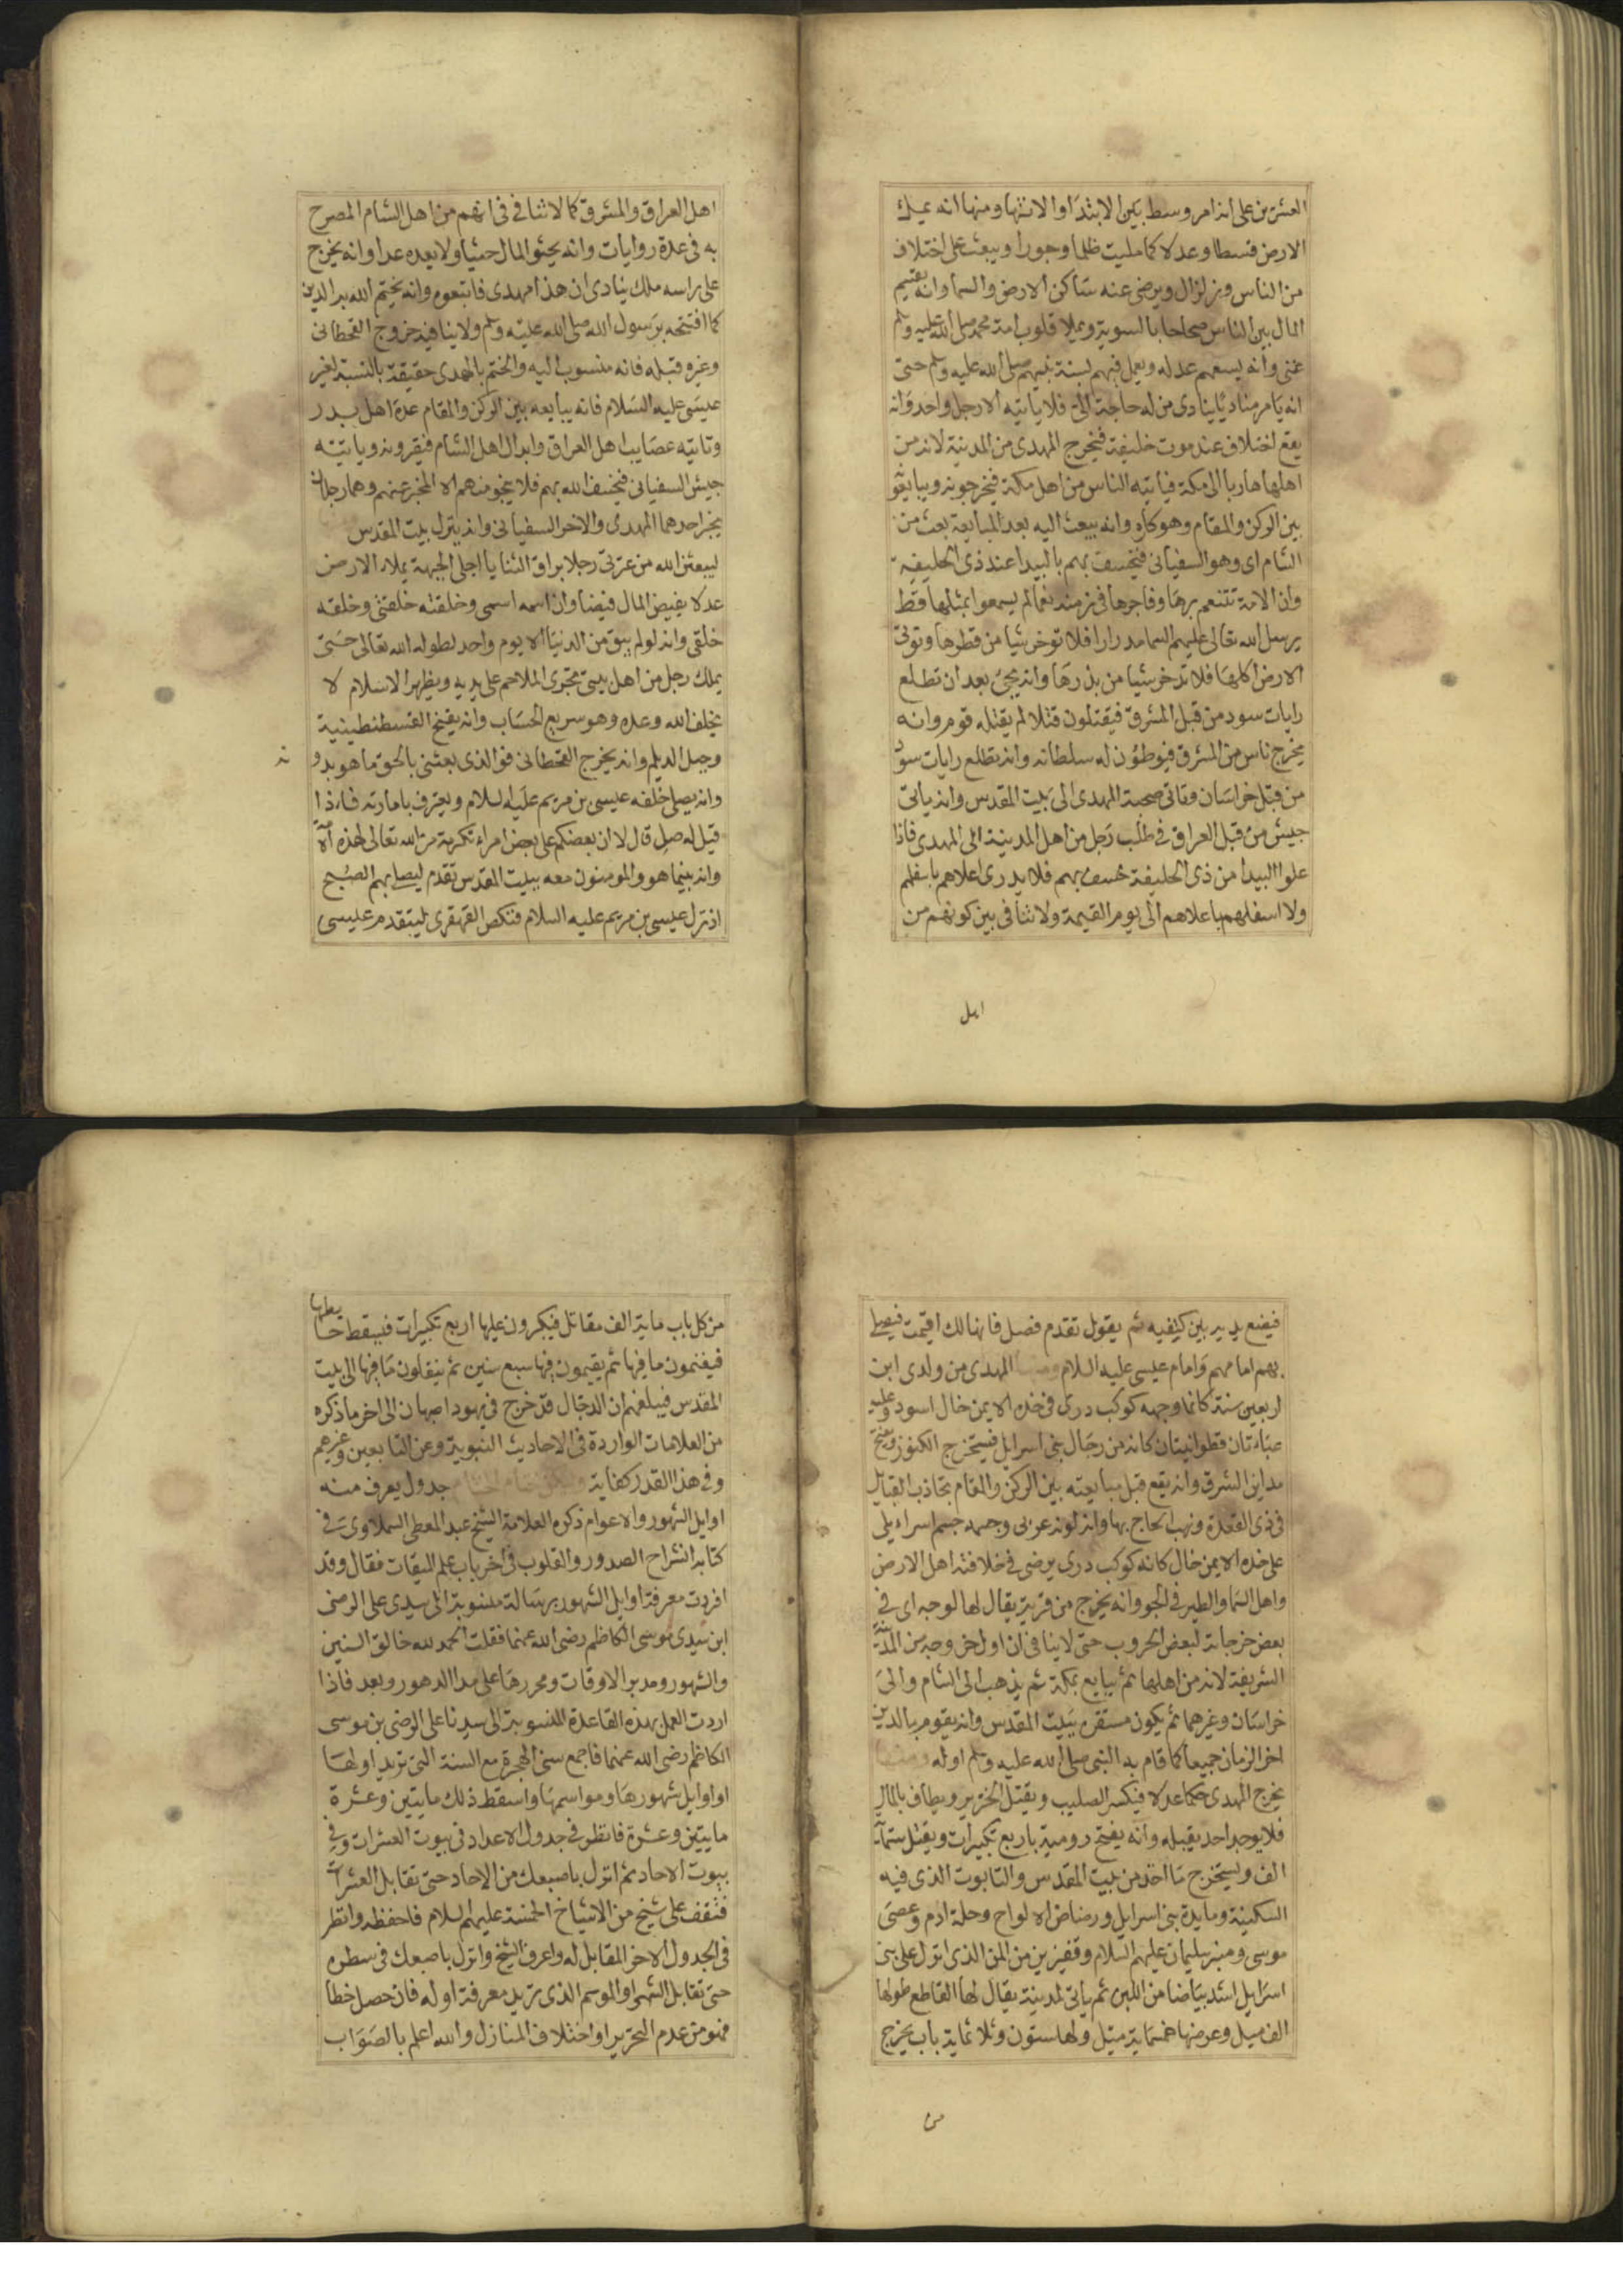 العشرين على انه امر وسط بين الابتدا والانتها ومنها انه يملك
الارض قسطا وعدلا كما مليت ظلما وجورا ويبعث على اختلاف
من الناس وزلزال ويرضى عنه ساكن الارض والسما وانه يقسم
المال بين الناس صحاحا بالسوية ويملا قلوب امة محمد صلى الله عليه وسلم
غنى وانه يسعهم عدله ويعمل فيهم بسنة نبيهم صلى الله عليه وسلم حتى
انه يامر مناديا ينادى من له حاجة الى فلا ياتيه الا رجل واحد وانه
يقع اختلاف عند موت خليفة فيخرج المهدى من المدينة لانه من
اهلها هاربا الى مكة فياتيه الناس من اهل مكة فيخرجونه ويبايعو
بين الركن والمقام وهو كاره وانه يبعث اليه بعد المبايعة بعث من
الشام اى وهو السفيانى فيخسف بهم بالبيدا عند ذى الحليفة
وان الامة تتنعم برها وفاجرها فى زمنه نعما لم يسمعوا بمثلها قط
يرسل الله تعالى عليهم السما مدرارا فلا توخر شيا من قطرها وتوتى
الارض اكلها فلا تدخر شيا من بذرها وانه يجئ بعد ان تطلع
رايات سود من قبل المشرق فيقتلون قتلا لم يقتله قوم وانه
يخرج ناس من المشرق فيوطون له سلطانه وانه تطلع رايات سود
من قبل خراسان وتاتى صحبة المهدى الى بيت المقدس وانه ياتى
جيش من قبل العراق فى طلب رجل من اهل المدينة الى المهدى فاذا
علوا البيدا من ذى الحليفة خسف بهم فلا يدرى اعلاهم باسفلهم
ولا اسفلهم باعلاهم الى يوم القيمة ولا تنافى بين كونهم من
اهل
اهل العراق والمشرق كما لا تنافى فى انهم من اهل الشام المصرح
به فى عدة روايات وانه يحثو المال حثيا ولا يعده عدا وانه يخرج
على راسه ملك ينادى ان هذا مهدى فاتبعوه وانه يختم الله به الدين
كما افتتحه برسول الله صلى الله عليه وسلم ولا ينافيه خروج القحطانى
وغيره قبله فانه منسوب اليه والختم بالمهدى حقيقة بالنسبة لغير
عيسى عليه السلام فانه يبايعه بين الركن والمقام عدة اهل بدر
وتاتيه عصايب اهل العراق وابدال اهل الشام فيقرونه وياتيه
جيش السفيانى فيخسف الله بهم فلا ينجو منهم الا المخبر عنهم وهما رجلان
يخبر احدهما المهدى والاخر السفيانى وانه ينزل بيت المقدس
ليبعثن الله من عترتى رجلا براق الثنايا اجلى الجبهة يملا الارض
عدلا يفيض المال فيضا وان اسمه اسمى وخلقته خلقتى وخلقه
خلقى وانه لو لم يبق من الدنيا الا يوم واحد لطوله الله تعالى حتى
يملك رجل من اهل بيتى تجرى الملاحم على يديه ويظهر الاسلام لا
يخلف الله وعده وهو سريع الحساب وانه يفتح القسطنطينية
وجبل الديلم وانه يخرج القحطانى فوالذى بعثنى بالحق ما هو بدو
نه
وانه يصلى خلفه عيسى بن مريم عليه السلام ويعترف بامارته فاذا
قيل له صل قال لا ان بعضكم على بعض امراء تكرمة من الله تعالى لهذه الامة
وانه بينما هو والمومنون معه ببيت المقدس تقدم ليصلى بهم الصبح
اذ نزل عيسى بن مريم عليه السلام فنكص القهقرى ليتقدم عيسى
فيضع يديه بين كتفيه ثم يقول تقدم فصل فانها لك اقيمت فيصلى
بهم امامهم وامام عيسى عليه السلام ومنها المهدى من ولدى ابن
اربعين سنة كانما وجهه كوكب درى فى خده الايمن خال اسود وعليه
عباءتان قطوانيتان كانه من رجال بنى اسرايل فيستخرج الكنوز ويفتح
مداين الشرق وانه يقع قبل مبايعته بين الركن والمقام تجاذب القبايل
فى ذى القعدة ونهب الحاج بها وانه لونه عربى وجسمه جسم اسراءيلى
على خده الايمن خال كانه كوكب درى يرضى فى خلافته اهل الارض
واهل السما والطير فى الجو وانه يخرج من قرية يقال لها لوجبه اى فى
بعض خرجاته لبعض الحروب حتى لا ينافى ان اول خروجه من المدينة
الشريفة لانه من اهلها ثم يبايع بمكة ثم يذهب الى الشام والى
خراسان وغيرهما ثم يكون مستقره ببيت المقدس وانه يقوم بالدين
اخر الزمان جميعا كما قام به النبى صلى الله عليه وسلم اوله ومنها
يخرج المهدى حكما عدلا فيكسر الصليب ويقتل الخنزير ويطاف بالمال
فلا يوجد احد يقبله وانه يفتح رومية باربع تكبيرات ويقتل ستماية
الف ويستخرج ما اخذ من بيت المقدس والتابوت الذى فيه
السكينة ومايدة بنى اسرايل ورضاض الالواح وحلة ادم وعصى
موسى ومنبر سليمان عليهم السلام وقفيزين من المن الذى انزل على بنى
اسرايل اشد بياضا من اللبن ثم ياتى لمدينة يقال لها القاطع طولها
الف ميل وعرضها خمسماية ميل ولها ستون وثلاثماية باب يخرج
من
من كل باب ماية الف مقاتل فيكبرون عليها اربع تكبيرات فيسقط حايطها
فيغنمون ما فيها ثم يقيمون فيها سبع سنين ثم ينقلون ما فيها الى بيت
المقدس فيبلغهم ان الدجال قد خرج فى يهود اصبهان الى اخر ما ذكره
من العلامات الواردة فى الاحاديث النبوية وعن التابعين وغيرهم
وفى هذا القدر كفاية جدول يعرف منه
اوايل الشهور والاعوام ذكره العلامة الشيخ عبد المعطى السملاوى فى
كتابه انشراح الصدور والقلوب فى اخر باب علم الميقات فقال وقد
افردت معرفة اوايل الشهور برسالة منسوبة الى سيدى على الرضى
ابن سيدى موسى الكاظم رضى الله عنهما فقلت الحمد لله خالق السنين
والشهور ومدبر الاوقات ومحررها على مدا الدهور وبعد فاذا
اردت العمل بهذه القاعدة المنسوبة الى سيدنا على الرضى بن موسى
الكاظم رضى الله عنهما فاجمع سنى الهجرة مع السنة التى تريد اولها
او اوايل شهورها ومواسمها واسقط ذلك مايتين وعشرة
مايتين وعشرة فانظر فى جدول الاعداد فى بيوت العشرات وفى
بيوت الاحاد ثم انزل باصبعك من الاحاد حتى تقابل العشرات
فتقف على شيخ من الاشياخ الخمسة عليهم السلام فاحفظه وانظر
فى الجدول الاخر المقابل له واعرف الشيخ وانزل باصبعك فى سطره
حتى تقابل الشهر او الموسم الذى تريد معرفة اوله فان حصل خطا
فهو من عدم التحرير او اختلاف المنازل والله اعلم بالصواب